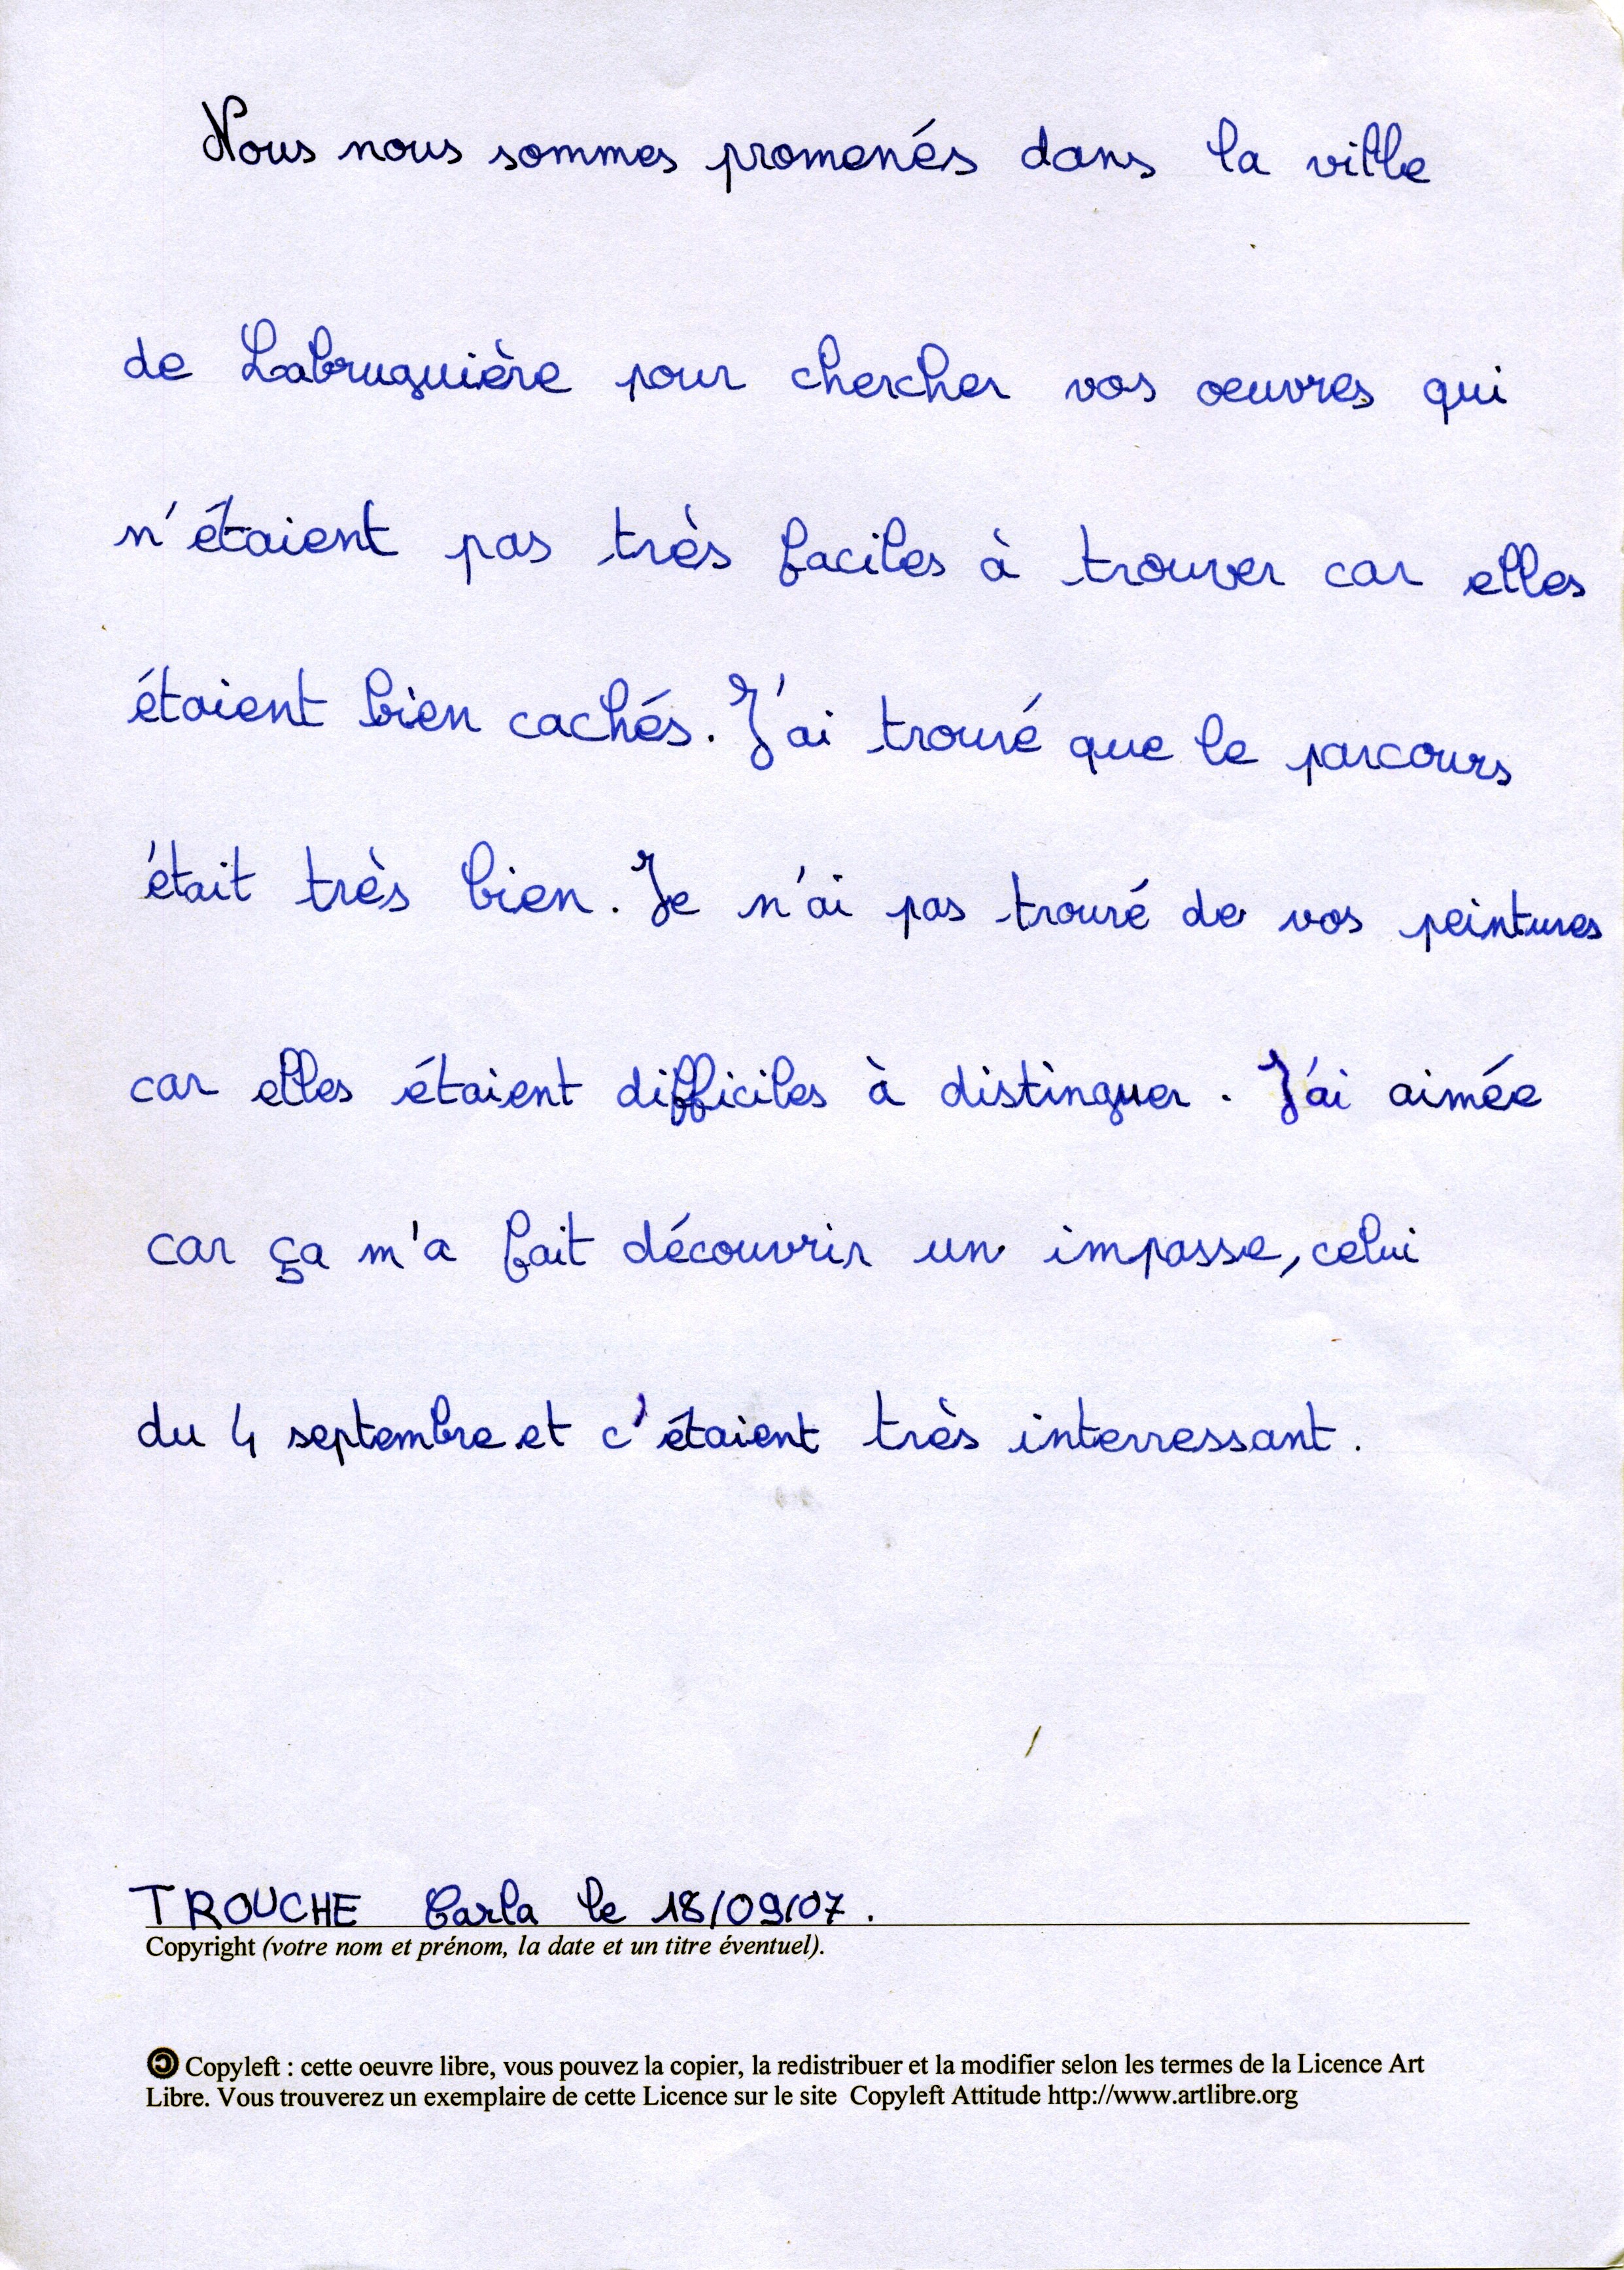 Nous nous sommes promenés dans la ville
de Labruguière pour chercher vos oeuvres qui
n'étaient pas très faciles à trouver car elles
étaient bien cachés. J'ai trouvé que le parcours
était très bien. Je n'ai pas trouvé de vos peintures
car elles étaient difficiles à distinguer. J'ai aimée
car ça m'a fait découvrir un impasse, celui
du 4 septembre et c'étaient très interressant.
TROUCHE Carla le 18/09/07.
Copyright (votre nom et prénom, la date et un titre éventuel).
Copyleft : cette oeuvre libre, vous pouvez la copier, la redistribuer et la modifier selon les termes de la Licence Art
Libre. Vous trouverez un exemplaire de cette Licence sur le site Copyleft Attitude http://www.artlibre.org